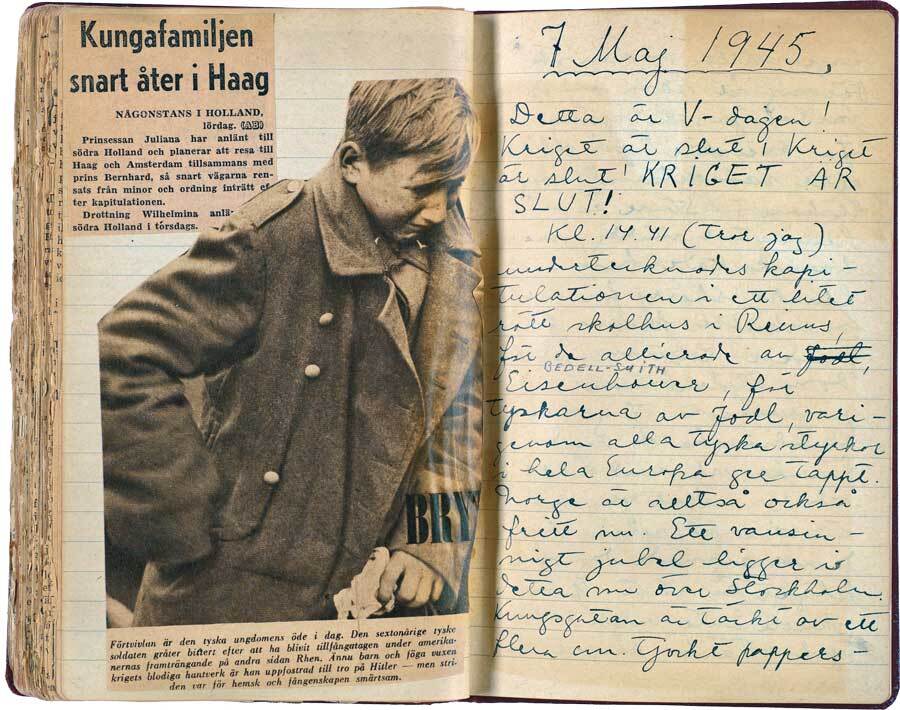 Kungafamiljen
snart åter i Haag
NÅGONSTANS I HOLLAND,
lördag. (AB)
Prinsessan Juliana har anlänt till
södra Holland och planerar att resa till
Haag och Amsterdam tillsammans med
prins Bernhard, så snart vägarna ren-
sats från minor och ordning inträtt ef-
ter kapitulationen.
Drottning Wilhelmina anlä
södra Holland i torsdags.
BRY
Förtvivlan är den tyska ungdomens öde i dag. Den sextonårige tyske
soldaten gråter bittert efter att ha blivit tillfångatagen under amerika-
nernas framträngande på andra sidan Rhen. Ännu barn och föga vuxen
krigets blodiga hantverk är han uppfostrad till tro på Hitler — men stri-
den var för hemsk och fångenskapen smärtsam.
7 Maj 1945.
Detta är V-dagen!
Kriget är slut! Kriget
är slut! KRIGET ÄR
SLUT!
Kl. 14.41 (tror jag)
undertecknades kapi-
tulationen i ett litet
rött skolhus i Reims,
för de allierade av Jodl,
BEDELL-SMITH
Eisenhower, för
tyskarna av Jodl, vari-
genom alla tyska styrkor
i hela Europa ge tappt.
Norge är alltså också
fritt nu. Ett vansin-
nigt jubel ligger i
detta nu över Stockholm.
Kungsgatan är täckt av ett
flera cm. tjockt pappers-